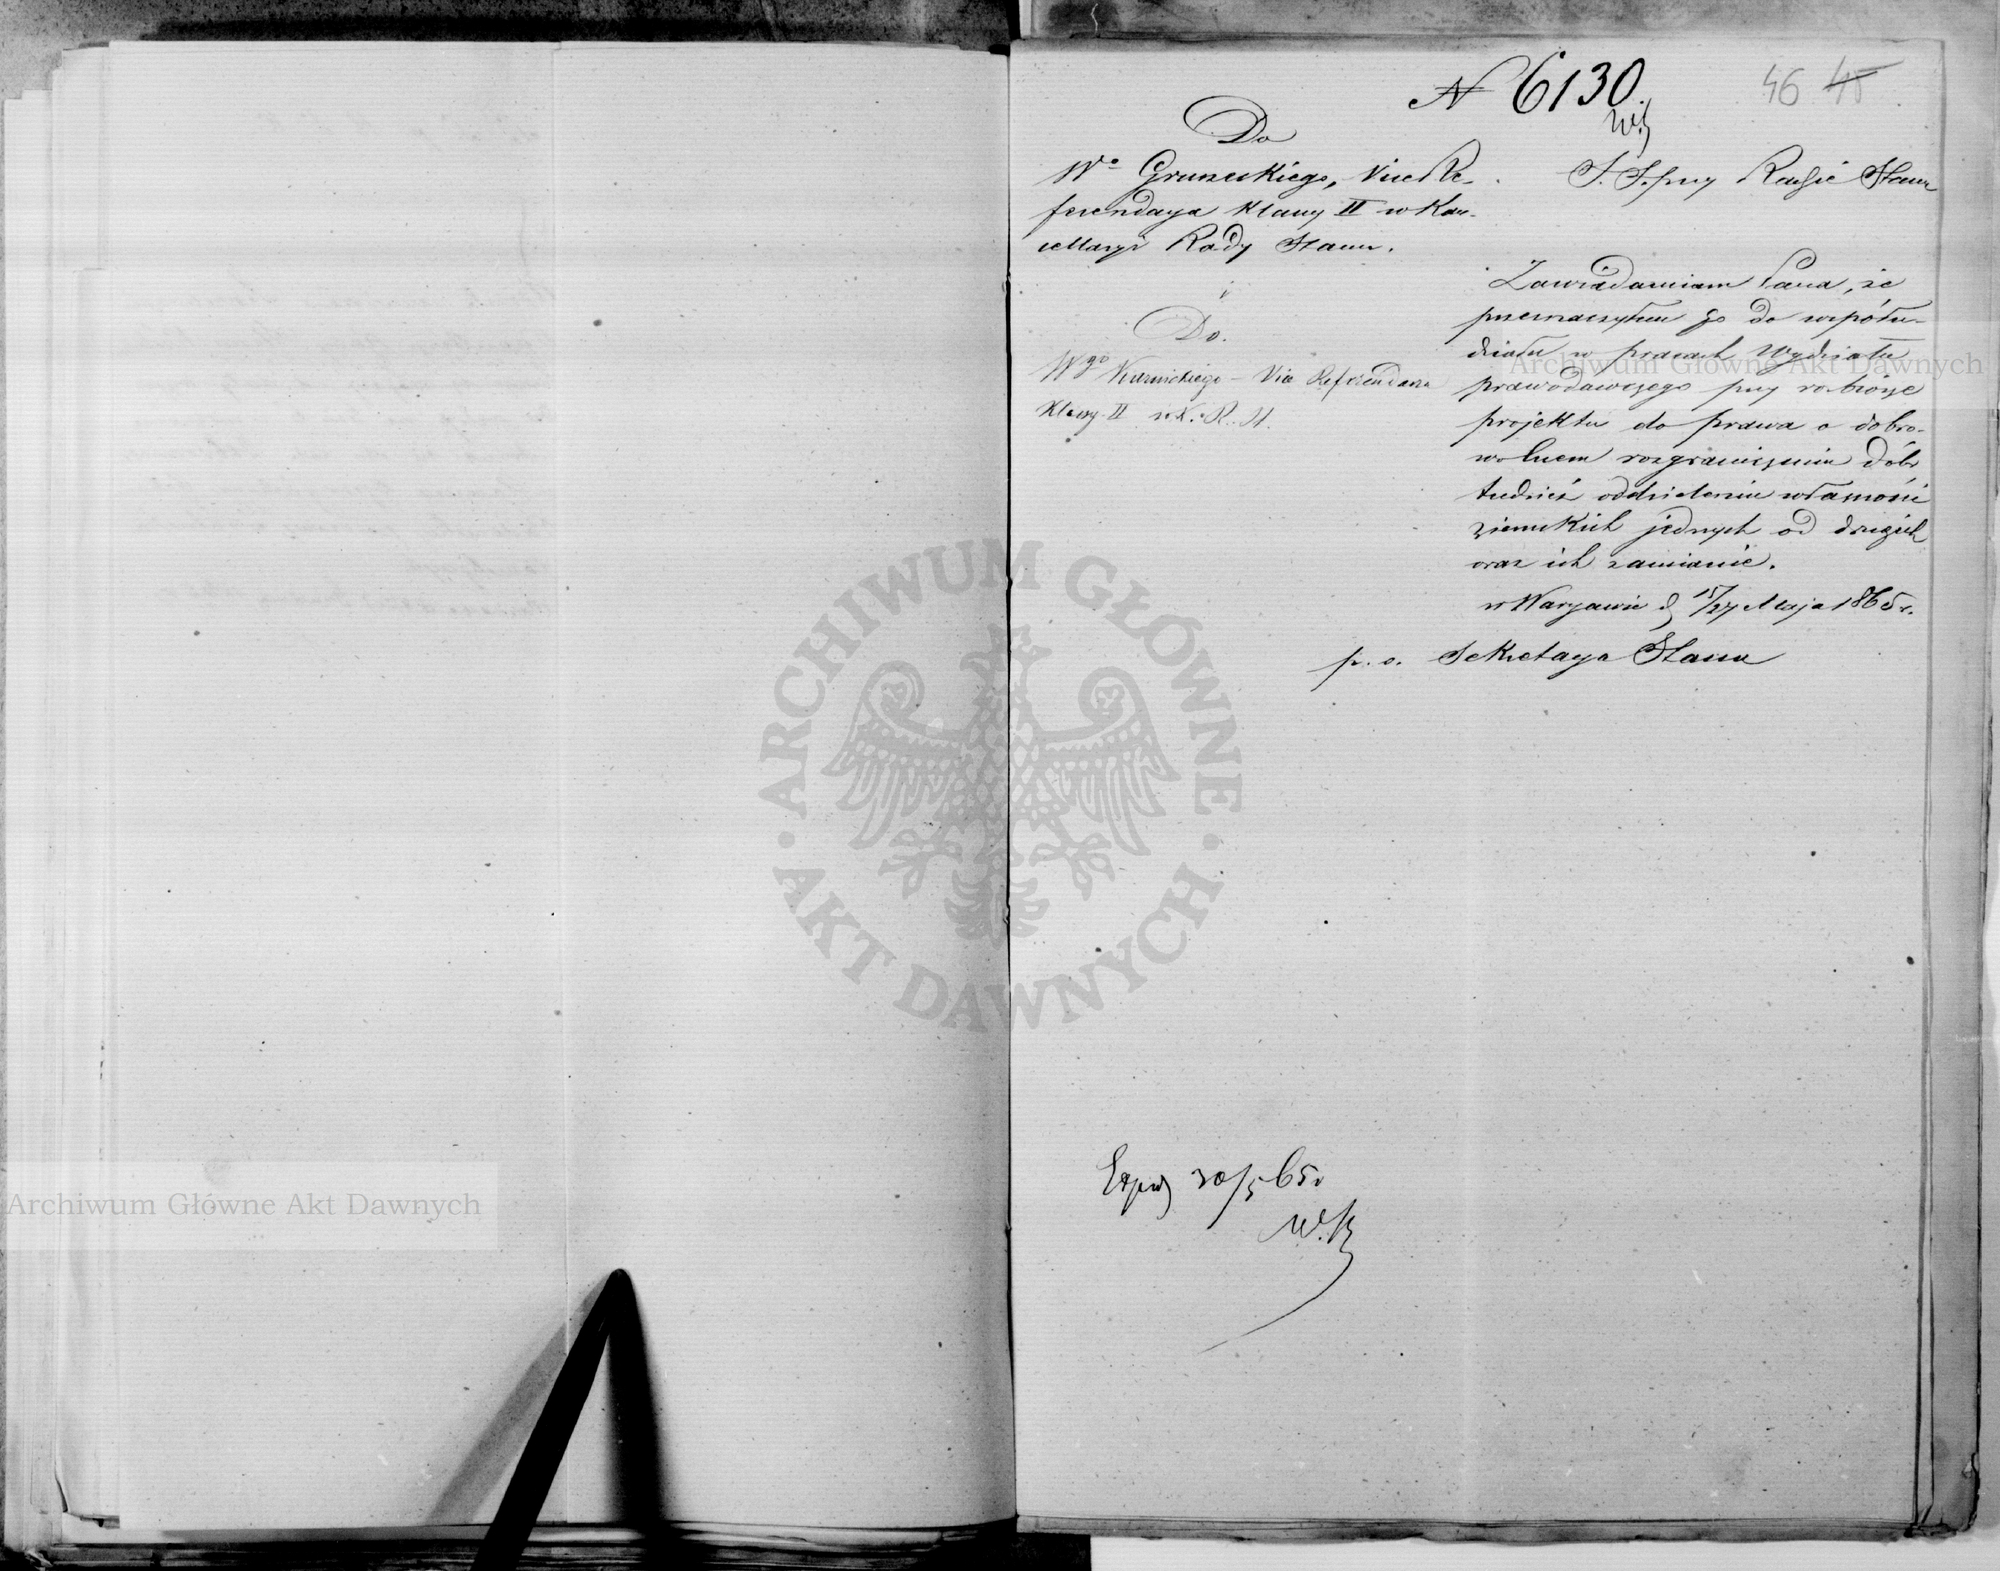 N 6130.
46 45
Do
Wo Gruneckiego, Vice Re-
ferendarza klassy II w Kan-
cellaryi Rady Stanu.
i
Do.
Wgo Kuźnickiego - Vice Referendarza
klassy II w K. R. St.
S. S. przy Radzie Stanu
Zawiadamiam Pana, że
przeznaczyłem go do współu-
działu w pracach Wydziału
prawodawczego przy rozbiorze
projektu do prawa o dobro-
wolnem rozgraniczeniu dóbr
tudzież oddzieleniu własności
ziemskich jednych od drugich
oraz ich zamianie.
w Warszawie d 15/27 Maja 1865 r.
p. o. Sekretarza Stanu
Exped 30/5 65 r
ARCHIWUM GŁÓWNE
AKT DAWNYCH
Archiwum Główne Akt Dawnych
Archiwum Główne Akt Dawnych